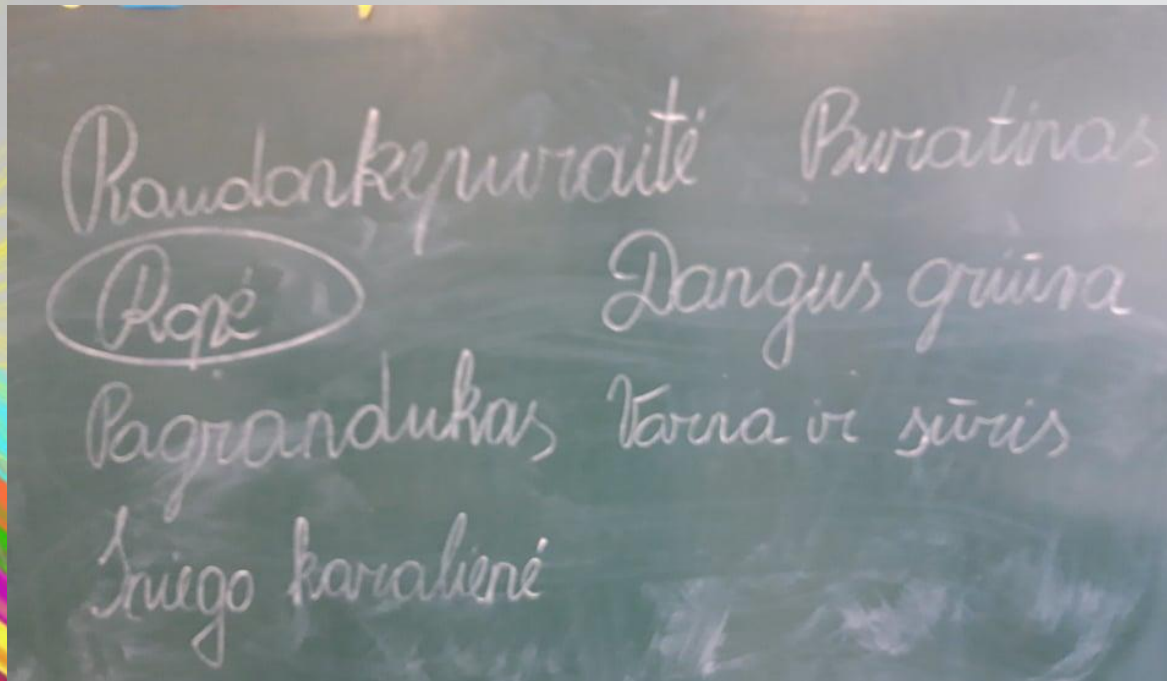 Raudonkepuraitė Buratinas
Ropė Dangus griūna
Pagrandukas Varna ir sūris
Sniego karalienė